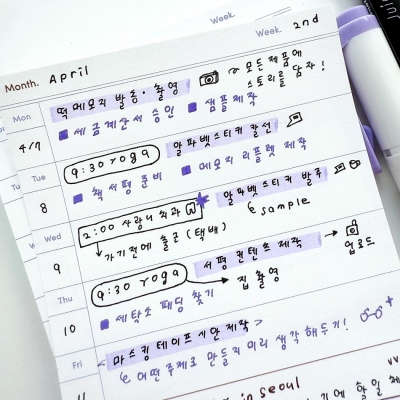 Week.
Month. April
Week. 2nd
Mon
4/7
떡메모지 발송·촬영
모든 제품에
스토리를 담자!
세금계산서 승인
샘플제작
Tue
8
9:30 yoga
알파벳스티커 칼선
책 서평 준비
메모지 리플렛 제작
Wed
9
2:00 사랑니 치과
알파벳스티커 발주
sample
가기전에 출근 (택배)
Thu
10
9:30 yoga
서평 컨텐츠 제작
업로드
집 촬영
세탁소 패딩 찾기
Fri
마스킹테이프 시안 제작
어떤 주제로 만들지 미리 생각해두기!
in seoul